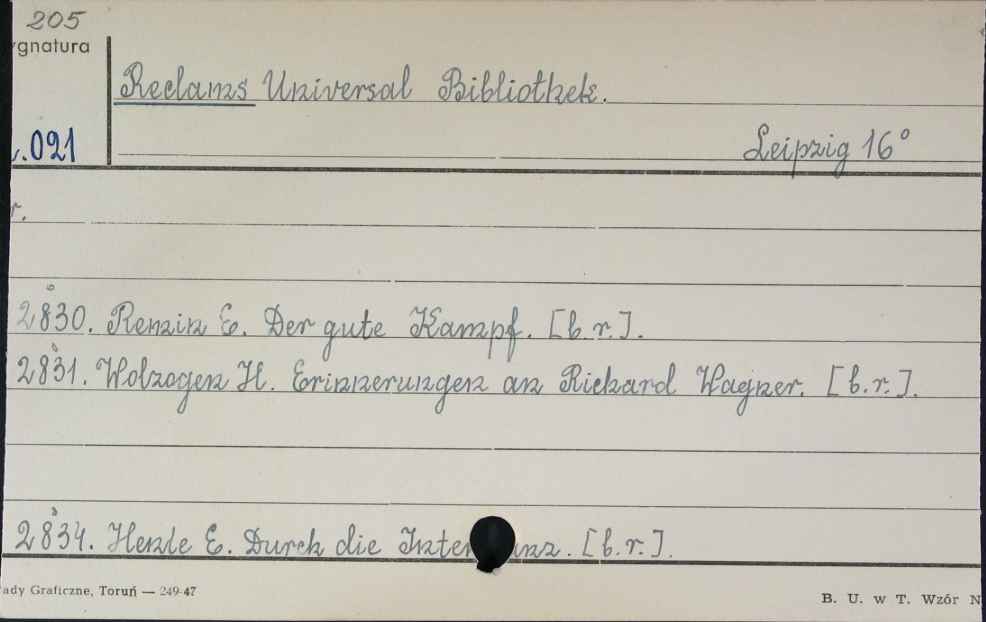 205
ygnatura
Reclams Universal Bibliothek.
.021
Leipzig 16°
r.
2830. Renzin E. Der gute Kampf. [b.r.].
2831. Wolzogen H. Erinnerungen an Richard Wagner. [b.r.].
2834. Henle E. Durch die [b.r.].
ady Graficzne, Toruń — 249-47
B. U. w T. Wzór N